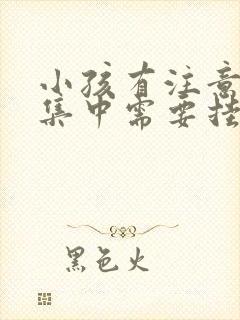 小孩有注意
集中需要挂
黑色火